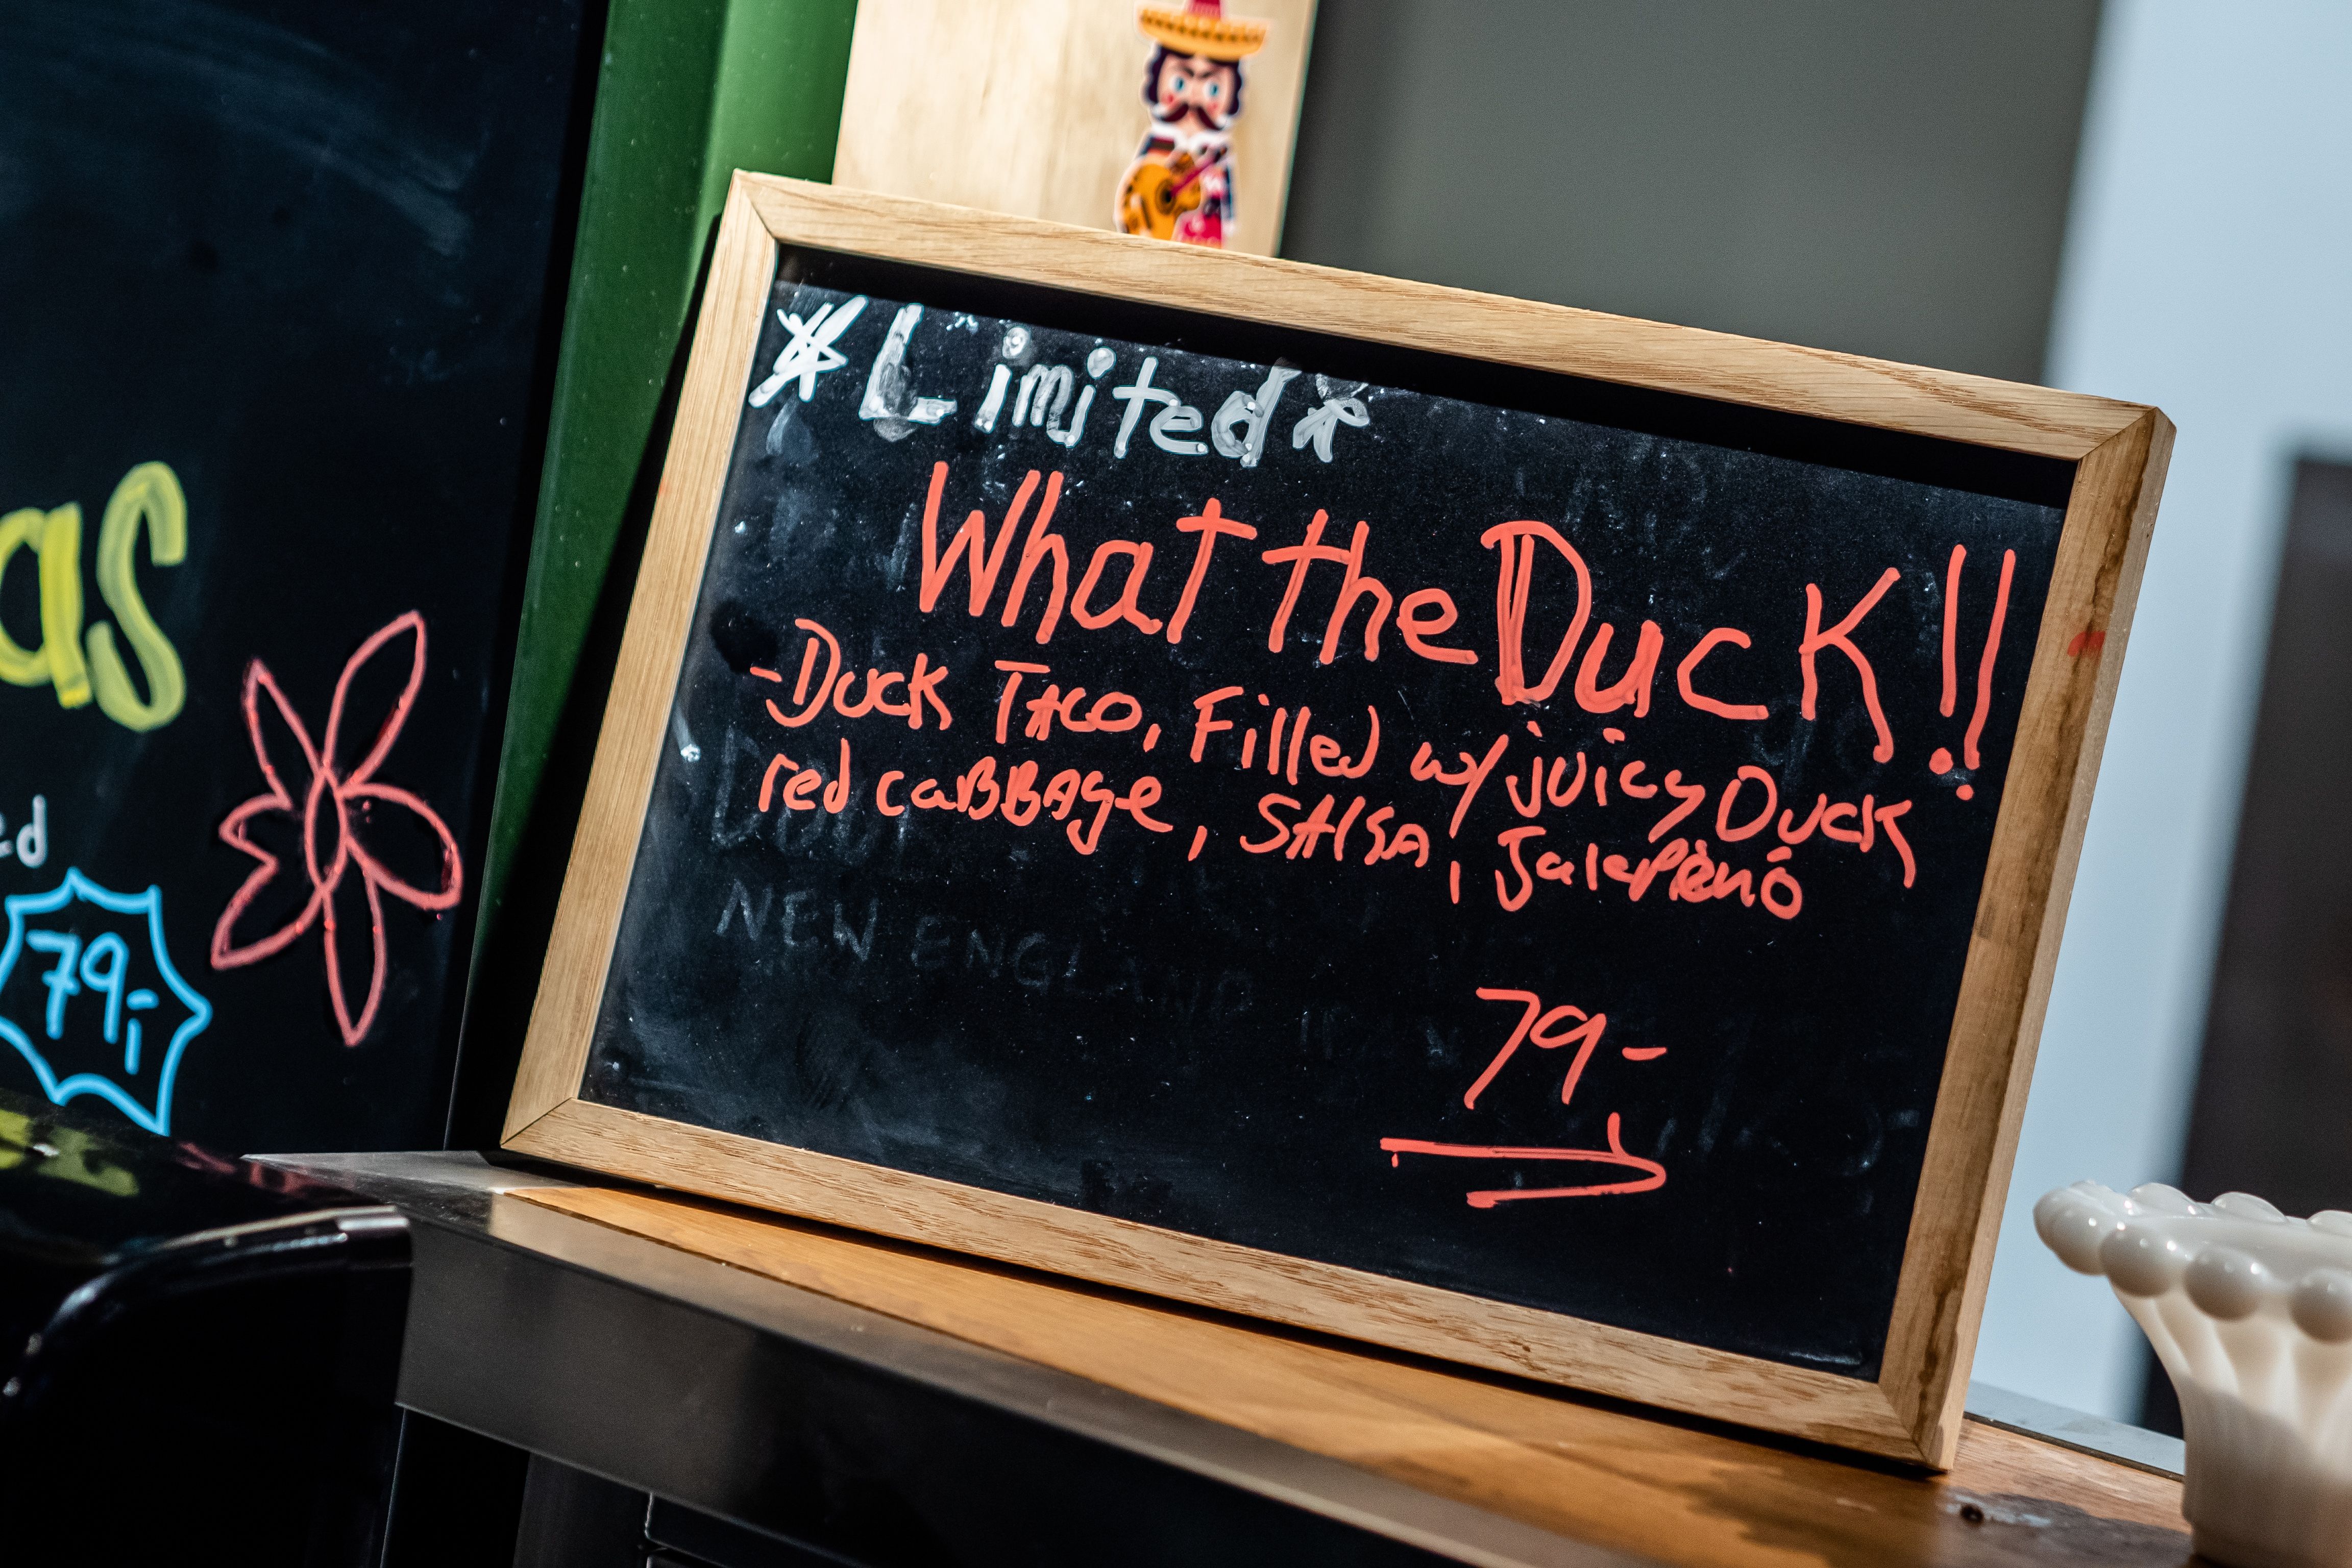 *Limited*
What the Duck!!
-Duck Taco, Filled w/ juicy Duck
red cabbage, salsa, Jalepénó
NEW ENGLAND
79-
as
ed
79,-